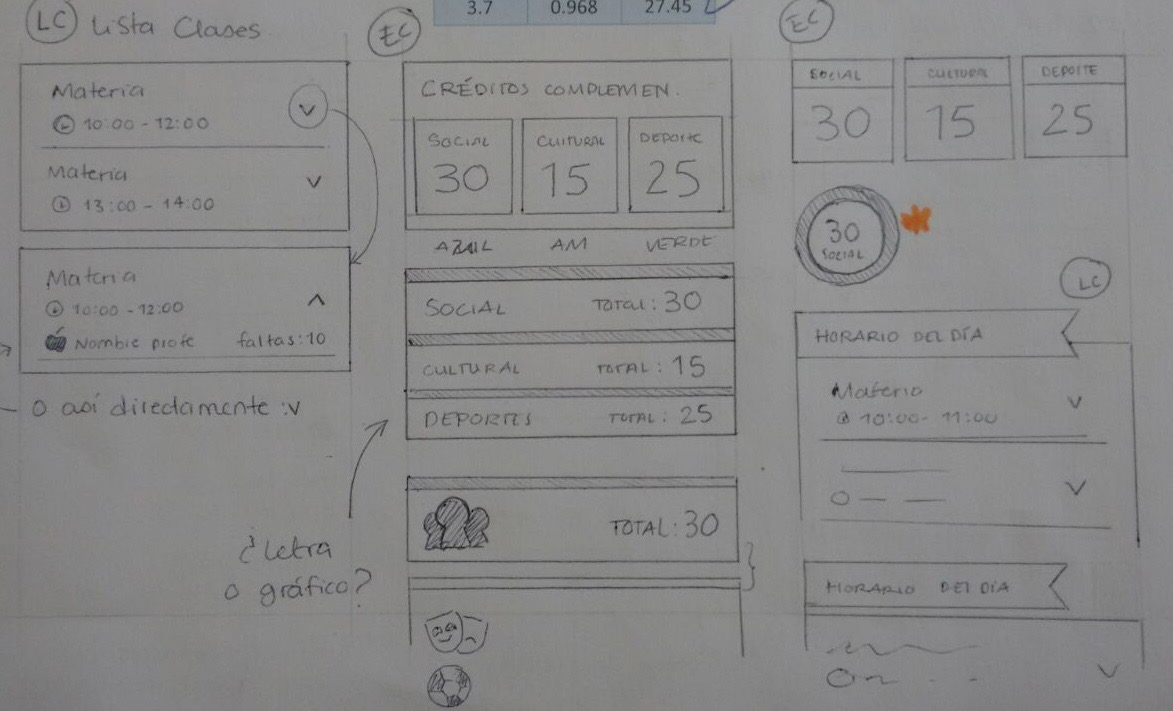 3.7 0.968 27.45
LC Lista Clases
Materia
10:00 - 12:00
Materia
13:00 - 14:00
Materia
10:00 - 12:00
Nombre profe faltas: 10
O así directamente :v
EC
CRÉDITOS COMPLEMEN.
SOCIAL CULTURAL DEPORTE
30 15 25
AZUL AM VERDE
SOCIAL TOTAL: 30
CULTURAL TOTAL: 15
DEPORTES TOTAL: 25
¿Letra
o gráfico?
TOTAL: 30
EC
SOCIAL CULTURAL DEPORTE
30 15 25
30
SOCIAL
LC
HORARIO DEL DÍA
Materia
10:00 - 11:00
HORARIO DEL DÍA